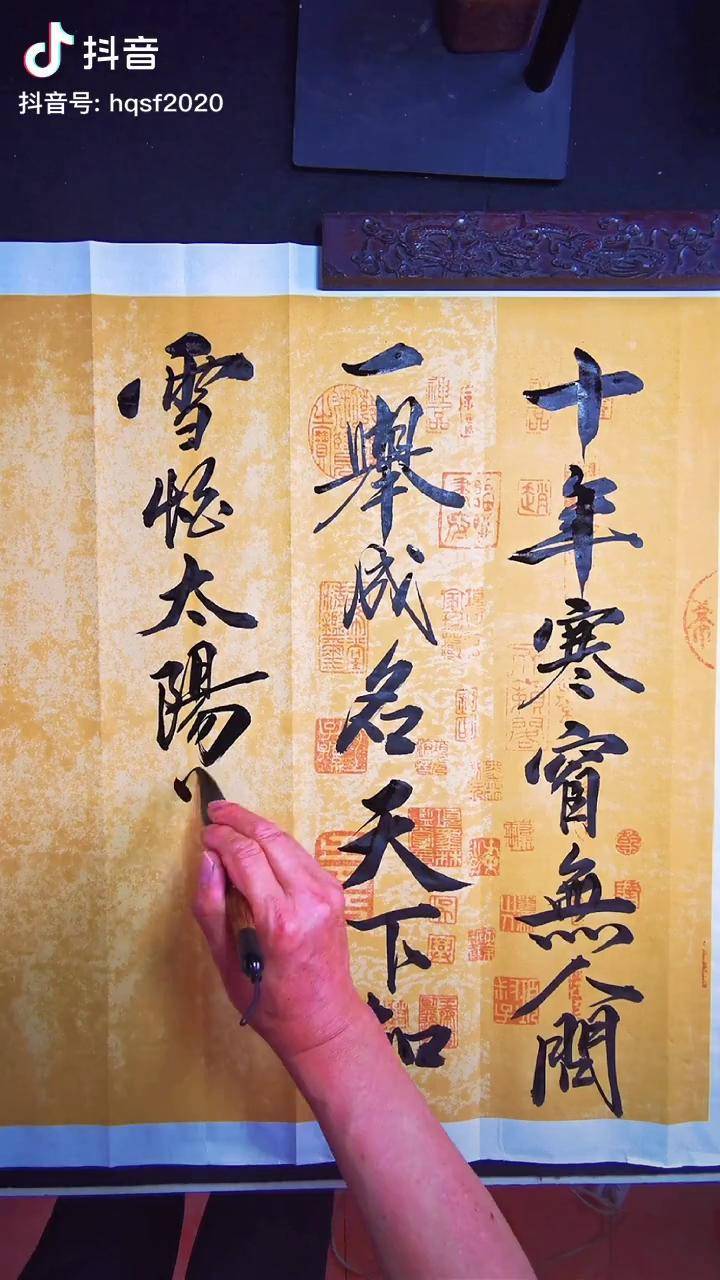 抖音
抖音号: hqsf2020
十年寒窗無人問
一舉成名天下知
雪怕太陽